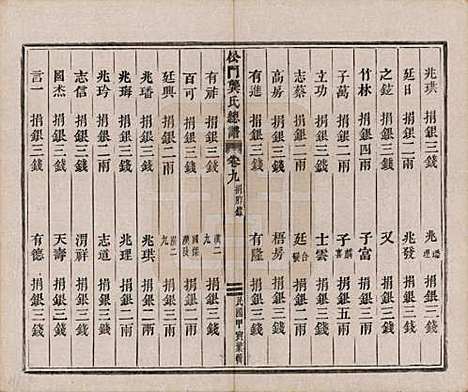 兆珙 捐銀三錢
兆璠 兆理 捐銀二錢
廷日 捐銀三錢
兆發 捐銀三錢
之鋐 捐銀三錢
又 捐銀三錢
竹林 捐銀四兩
子富 捐銀三兩
子萬 捐銀二兩
子富 捐銀五兩
立功 捐銀二兩
士雲 捐銀三兩
志蔡 捐銀二兩
廷 捐銀三錢
高房 捐銀三錢
梧房 捐銀三錢
有進 捐銀三錢
有隆 捐銀三錢
松門龔氏總譜 卷九 捐貯錄 三 民國甲寅業新
有祥 捐銀三錢
漢二九
百可 捐銀二兩
國傑 漢陵
廷興 捐銀二兩
漢二九
兆璠 捐銀三錢
兆珙 捐銀二兩
兆海 捐銀三錢
兆理 捐銀二兩
兆玲 捐銀二兩
志道 捐銀二兩
志信 捐銀三錢
渭祥 捐銀三錢
國杰 捐銀三錢
天壽 捐銀三錢
言一 捐銀三錢
有德 捐銀三錢